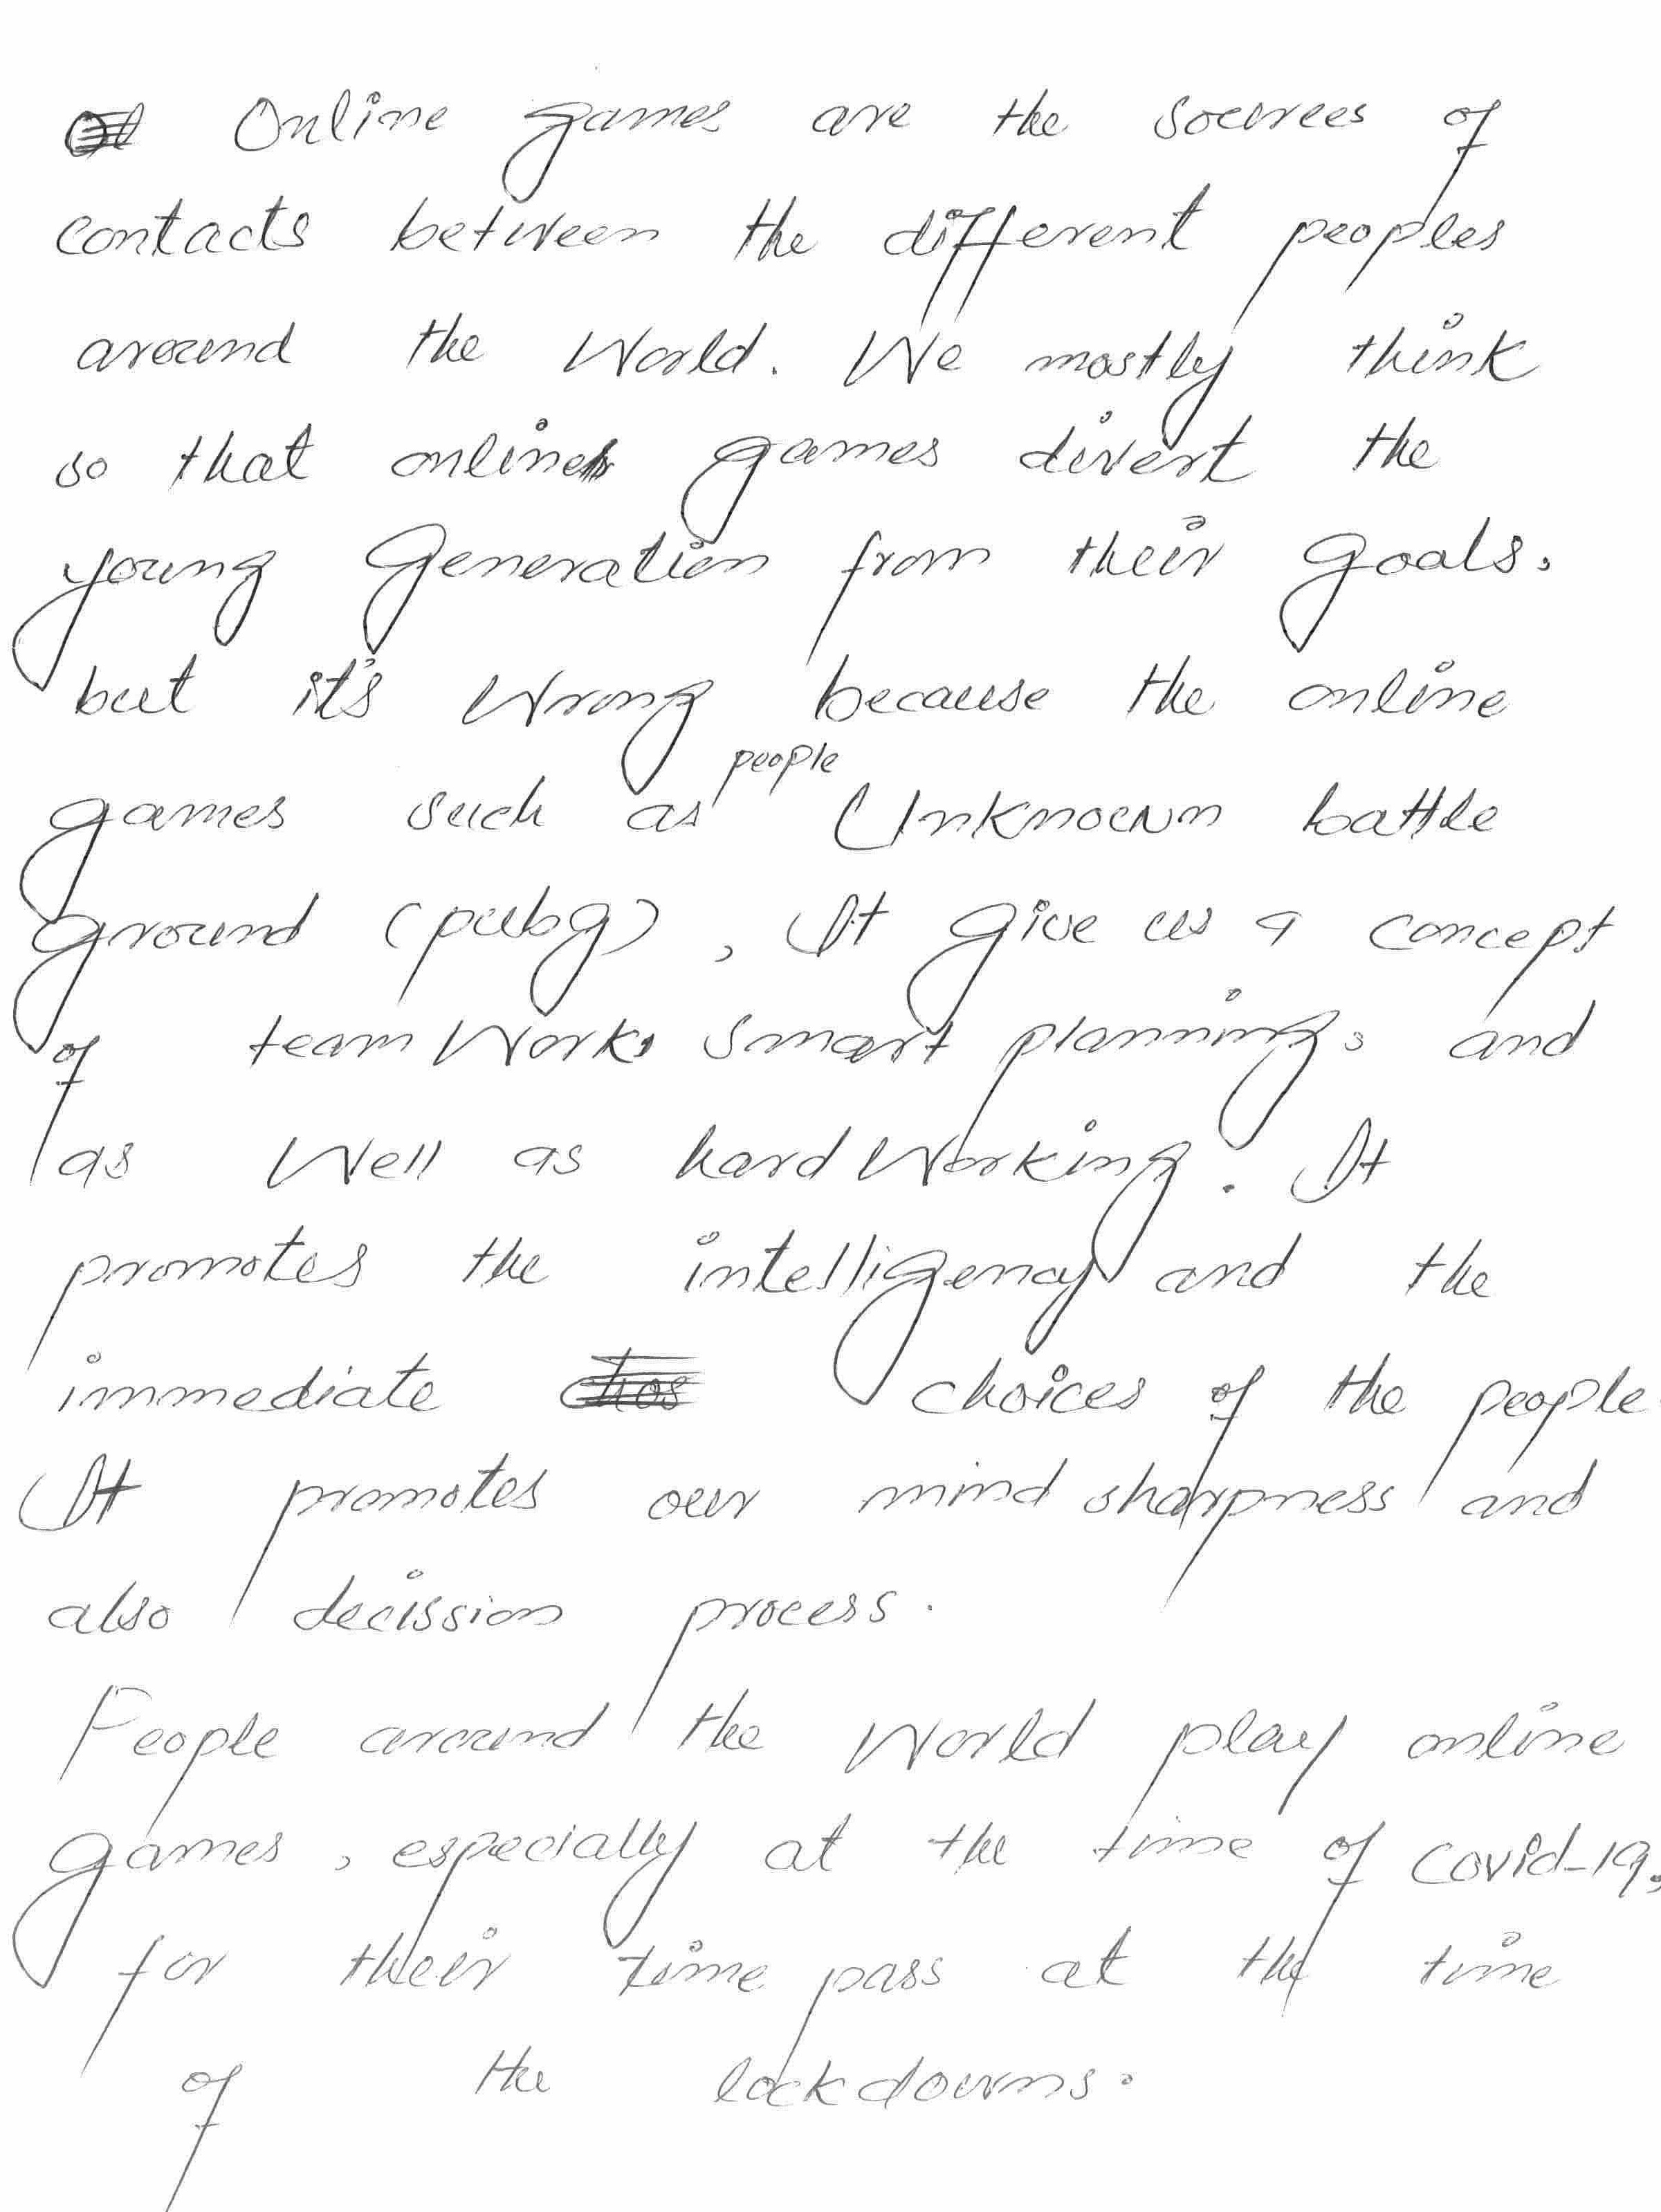 Online games are the sources of
contacts between the different peoples
around the World. We mostly think
so that online games divert the
young Generation from their goals.
but it's Wrong because the online
people
games such as Unknown battle
ground (pubg), It give us a concept
of team Work, Smart planning, and
as Well as hard Working. It
promotes the intelligency and the
immediate choices of the people
It promotes our mind sharpness and
also decission process.
People around the World play online
games, especially at the time of covid-19,
for their time pass at the time
of the lockdowns.